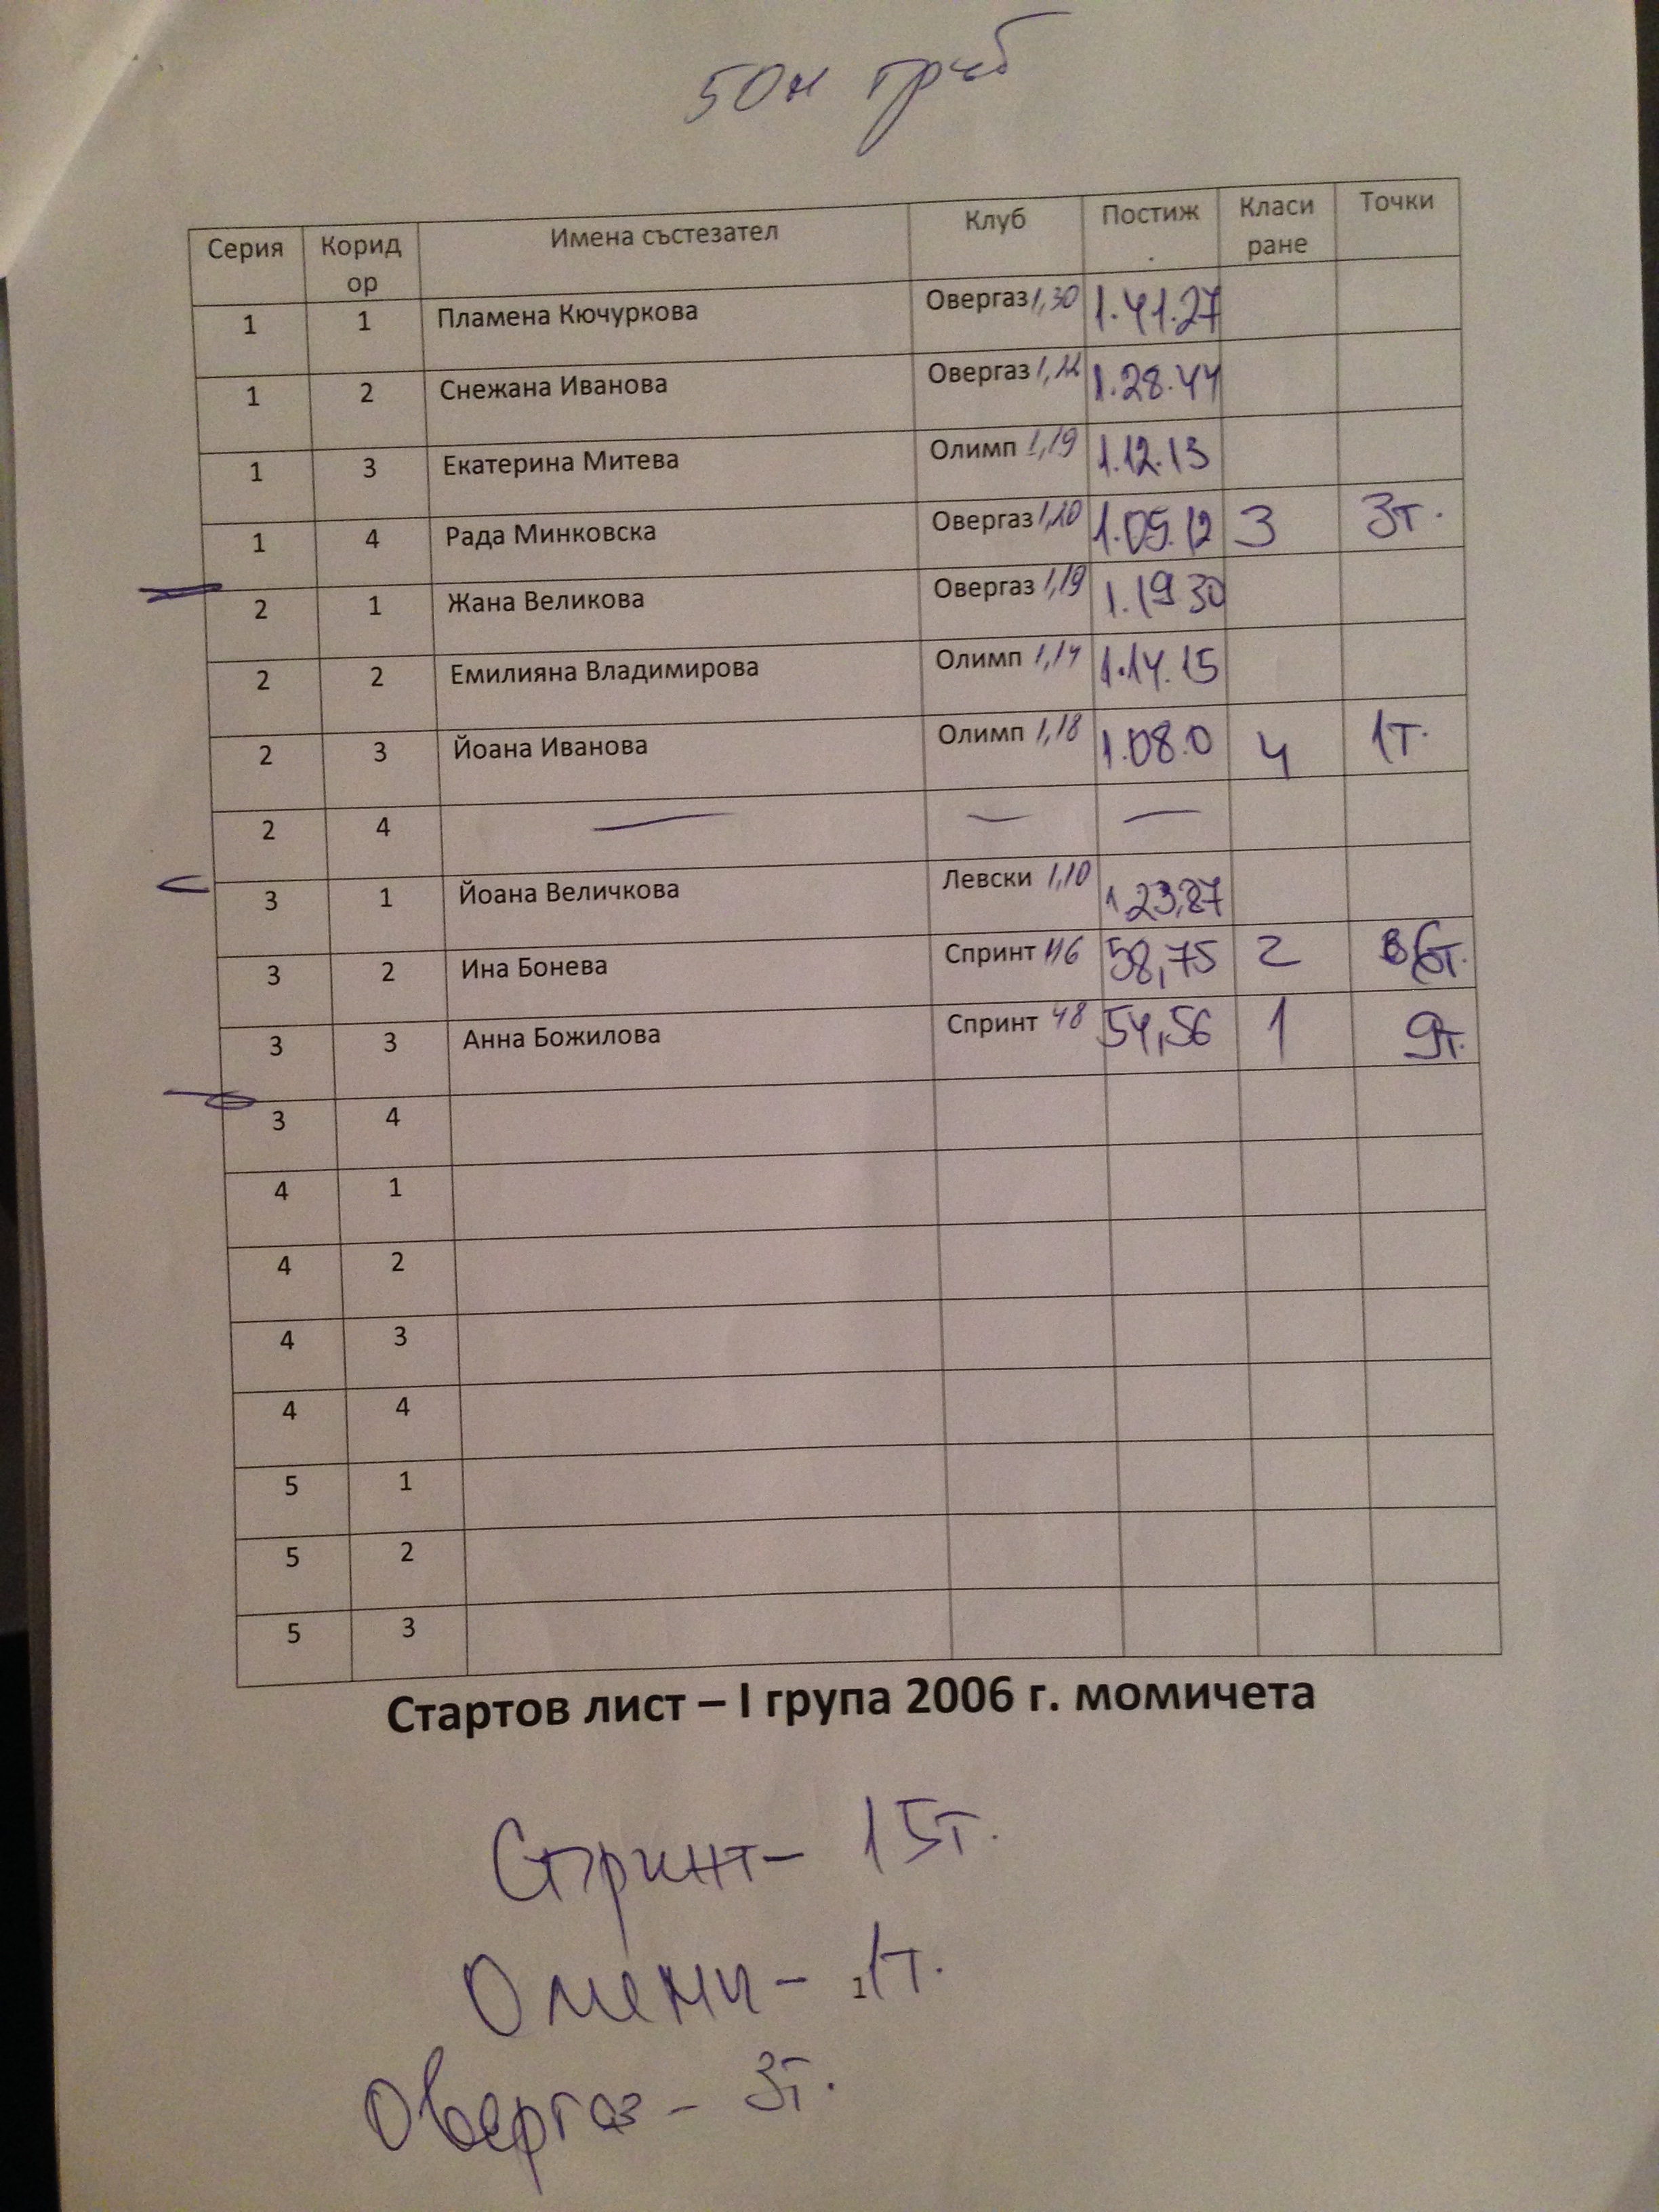 50м гръб
Серия Коридор Имена състезател Клуб Постиж. Класиране Точки
1 1 Пламена Кючуркова Овергаз 1,30 1.41.27
1 2 Снежана Иванова Овергаз 1.28.44
1 3 Екатерина Митева Олимп 1,19 1.12.13
1 4 Рада Минковска Овергаз 1,20 1.05.12 3 3т.
2 1 Жана Великова Овергаз 1,19 1.19 30
2 2 Емилияна Владимирова Олимп 1,14 1.14.15
2 3 Йоана Иванова Олимп 1,18 1.08.0 4 1т.
2 4 — — —
3 1 Йоана Величкова Левски 1,10 1 23,87
3 2 Ина Бонева Спринт 58,75 2 6т.
3 3 Анна Божилова Спринт 48 54,56 1 9т.
3 4
4 1
4 2
4 3
4 4
5 1
5 2
5 3
Стартов лист – I група 2006 г. момичета
Спринт- 15т.
- 1т.
1
Овергаз - 3т.